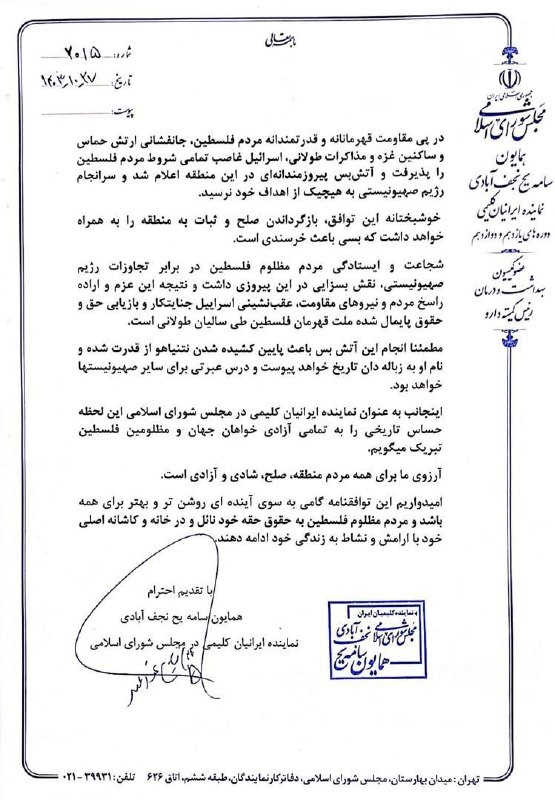 باسمه تعالی
شماره: ۲۰۱۵
تاریخ: ۱۴۰۳-۱۰-۲۷
پیوست:
جمهوری اسلامی ایران
مجلس شورای اسلامی
همایون
سامه یح نجف آبادی
نماینده ایرانیان کلیمی
دوره های یازدهم و دوازدهم
عضو کمیسیون
بهداشت و درمان
رئیس کمیته دارو
در پی مقاومت قهرمانانه و قدرتمندانه مردم فلسطین، جانفشانی ارتش حماس
و ساکنین غزه و مذاکرات طولانی، اسرائیل غاصب تمامی شروط مردم فلسطین
را پذیرفت و آتش‌بس پیروزمندانه‌ای در این منطقه اعلام شد و سرانجام
رژیم صهیونیستی به هیچیک از اهداف خود نرسید.
خوشبختانه این توافق، بازگرداندن صلح و ثبات به منطقه را به همراه
خواهد داشت که بسی باعث خرسندی است.
شجاعت و ایستادگی مردم مظلوم فلسطین در برابر تجاوزات رژیم
صهیونیستی، نقش بسزایی در این پیروزی داشت و نتیجه این عزم و اراده
راسخ مردم و نیروهای مقاومت، عقب‌نشینی اسراییل جنایتکار و بازیابی حق و
حقوق پایمال شده ملت قهرمان فلسطین طی سالیان طولانی است.
مطمئنا انجام این آتش بس باعث پایین کشیده شدن نتنیاهو از قدرت شده و
نام او به زباله دان تاریخ خواهد پیوست و درس عبرتی برای سایر صهیونیستها
خواهد بود.
اینجانب به عنوان نماینده ایرانیان کلیمی در مجلس شورای اسلامی این لحظه
حساس تاریخی را به تمامی آزادی خواهان جهان و مظلومین فلسطین
تبریک میگویم.
آرزوی ما برای همه مردم منطقه، صلح، شادی و آزادی است.
امیدواریم این توافقنامه گامی به سوی آینده ای روشن تر و بهتر برای همه
باشد و مردم مظلوم فلسطین به حقوق حقه خود نائل و در خانه و کاشانه اصلی
خود با ارامش و نشاط به زندگی خود ادامه دهند.
با تقدیم احترام
همایون سامه یح نجف آبادی
نماینده ایرانیان کلیمی در مجلس شورای اسلامی
نماینده کلیمیان ایران
مجلس شورای اسلامی
نجف آبادی
همایون سامه یح
تهران: میدان بهارستان، مجلس شورای اسلامی، دفاتر کار نمایندگان، طبقه ششم، اتاق ۶۲۶ تلفن: ۳۹۹۳۱-۰۲۱